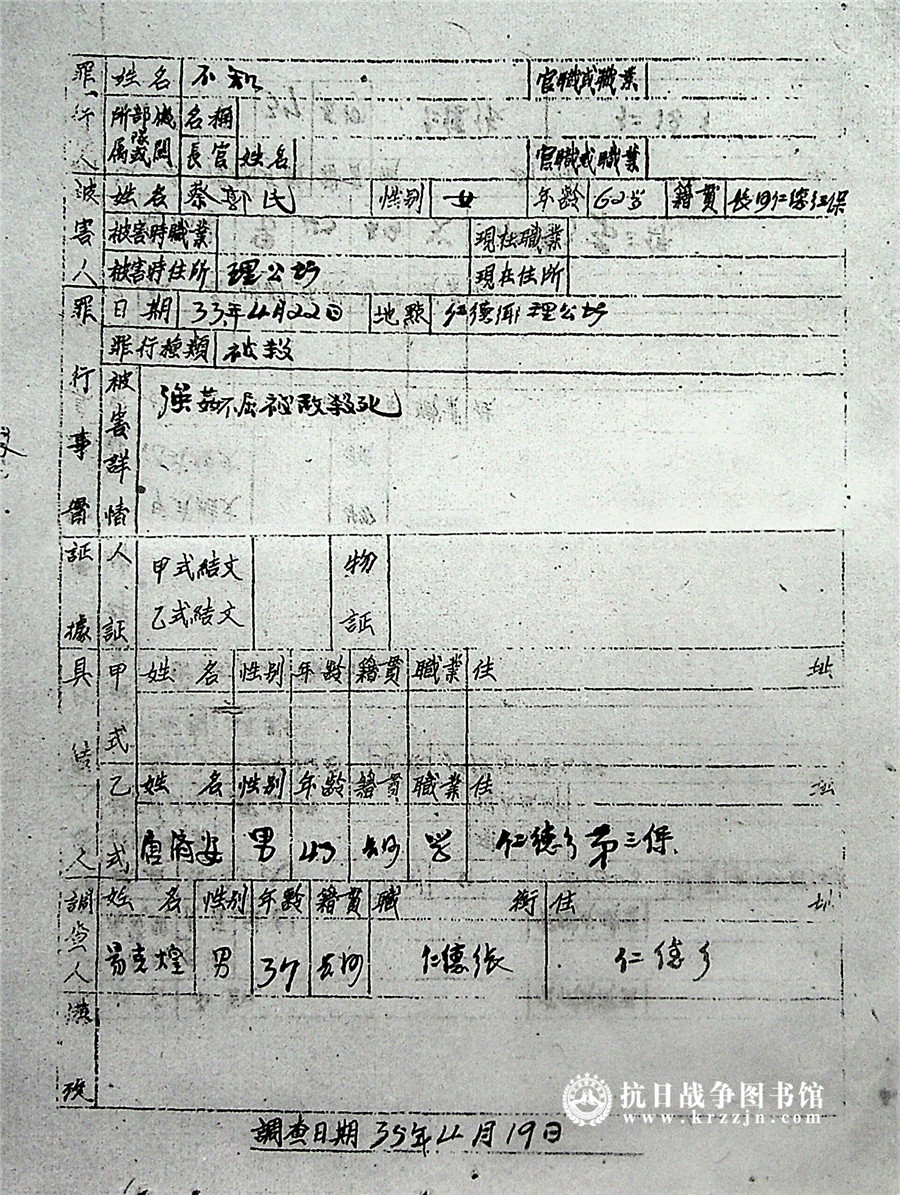 罪行人 姓名 不知 官職或職業
所屬部隊或機関 名稱
長官姓名 官職或職業
被害人 姓名 蔡鄧氏 性别 女 年齡 62岁 籍貫 長沙仁德
被害時職業 現在職業
被害時住所 理公坊 現在住所
罪行事實 日期 33年4月22日 地點 仁德鄉理公坊
罪行種類 被殺
被害詳情 強姦不屈被敵殺死
証據 人証 甲式結文 物証
乙式結文
具結人 甲式 姓名 性别 年齡 籍貫 職業 住址
乙式 姓名 性别 年齡 籍貫 職業 住址
男 43 長沙 仁德乡第三保
調查人 姓名 性别 年齡 籍貫 職銜 住址
易克煌 男 37 長沙 仁德 仁德乡
備攷
調查日期 35年4月19日
抗日战争图书馆
www.krzzjn.com